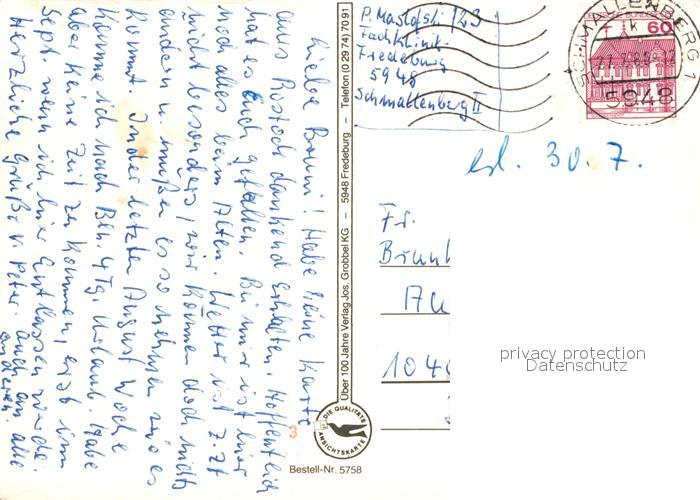 Liebe Bruni! Habe Deine Karte
aus Rostock dankend erhalten. Hoffentlich
hat es Euch gefallen. Bei mir ist hier
noch alles beim Alten. Wetter ist z. Zt
nicht besonders, wir können doch nichts
ändern u. müßen es so nehmen wie es
kommt. In der letzten August Woche
komme ich nach Ben. 4 Tg. Urlaub. Habe
aber keine Zeit zu kommen, erst im
Sept. wenn ich hier Entlassen werde.
Herzliche Grüße v. Peter. auch an alle
anderen.
Über 100 Jahre Verlag Jos. Grobbel KG – 5948 Fredeburg – Telefon (0 29 74) 70 91
DIE QUALITÄTS
ANSICHTSKARTE
3
Bestell-Nr. 5758
P. Maslofski 123
Fachklinik
Fredeburg
5948
Schmallenberg II
SCHMALLENBERG
k
5948
60
erl. 30. 7.
Fr.
Brunh
104
privacy protection
Datenschutz